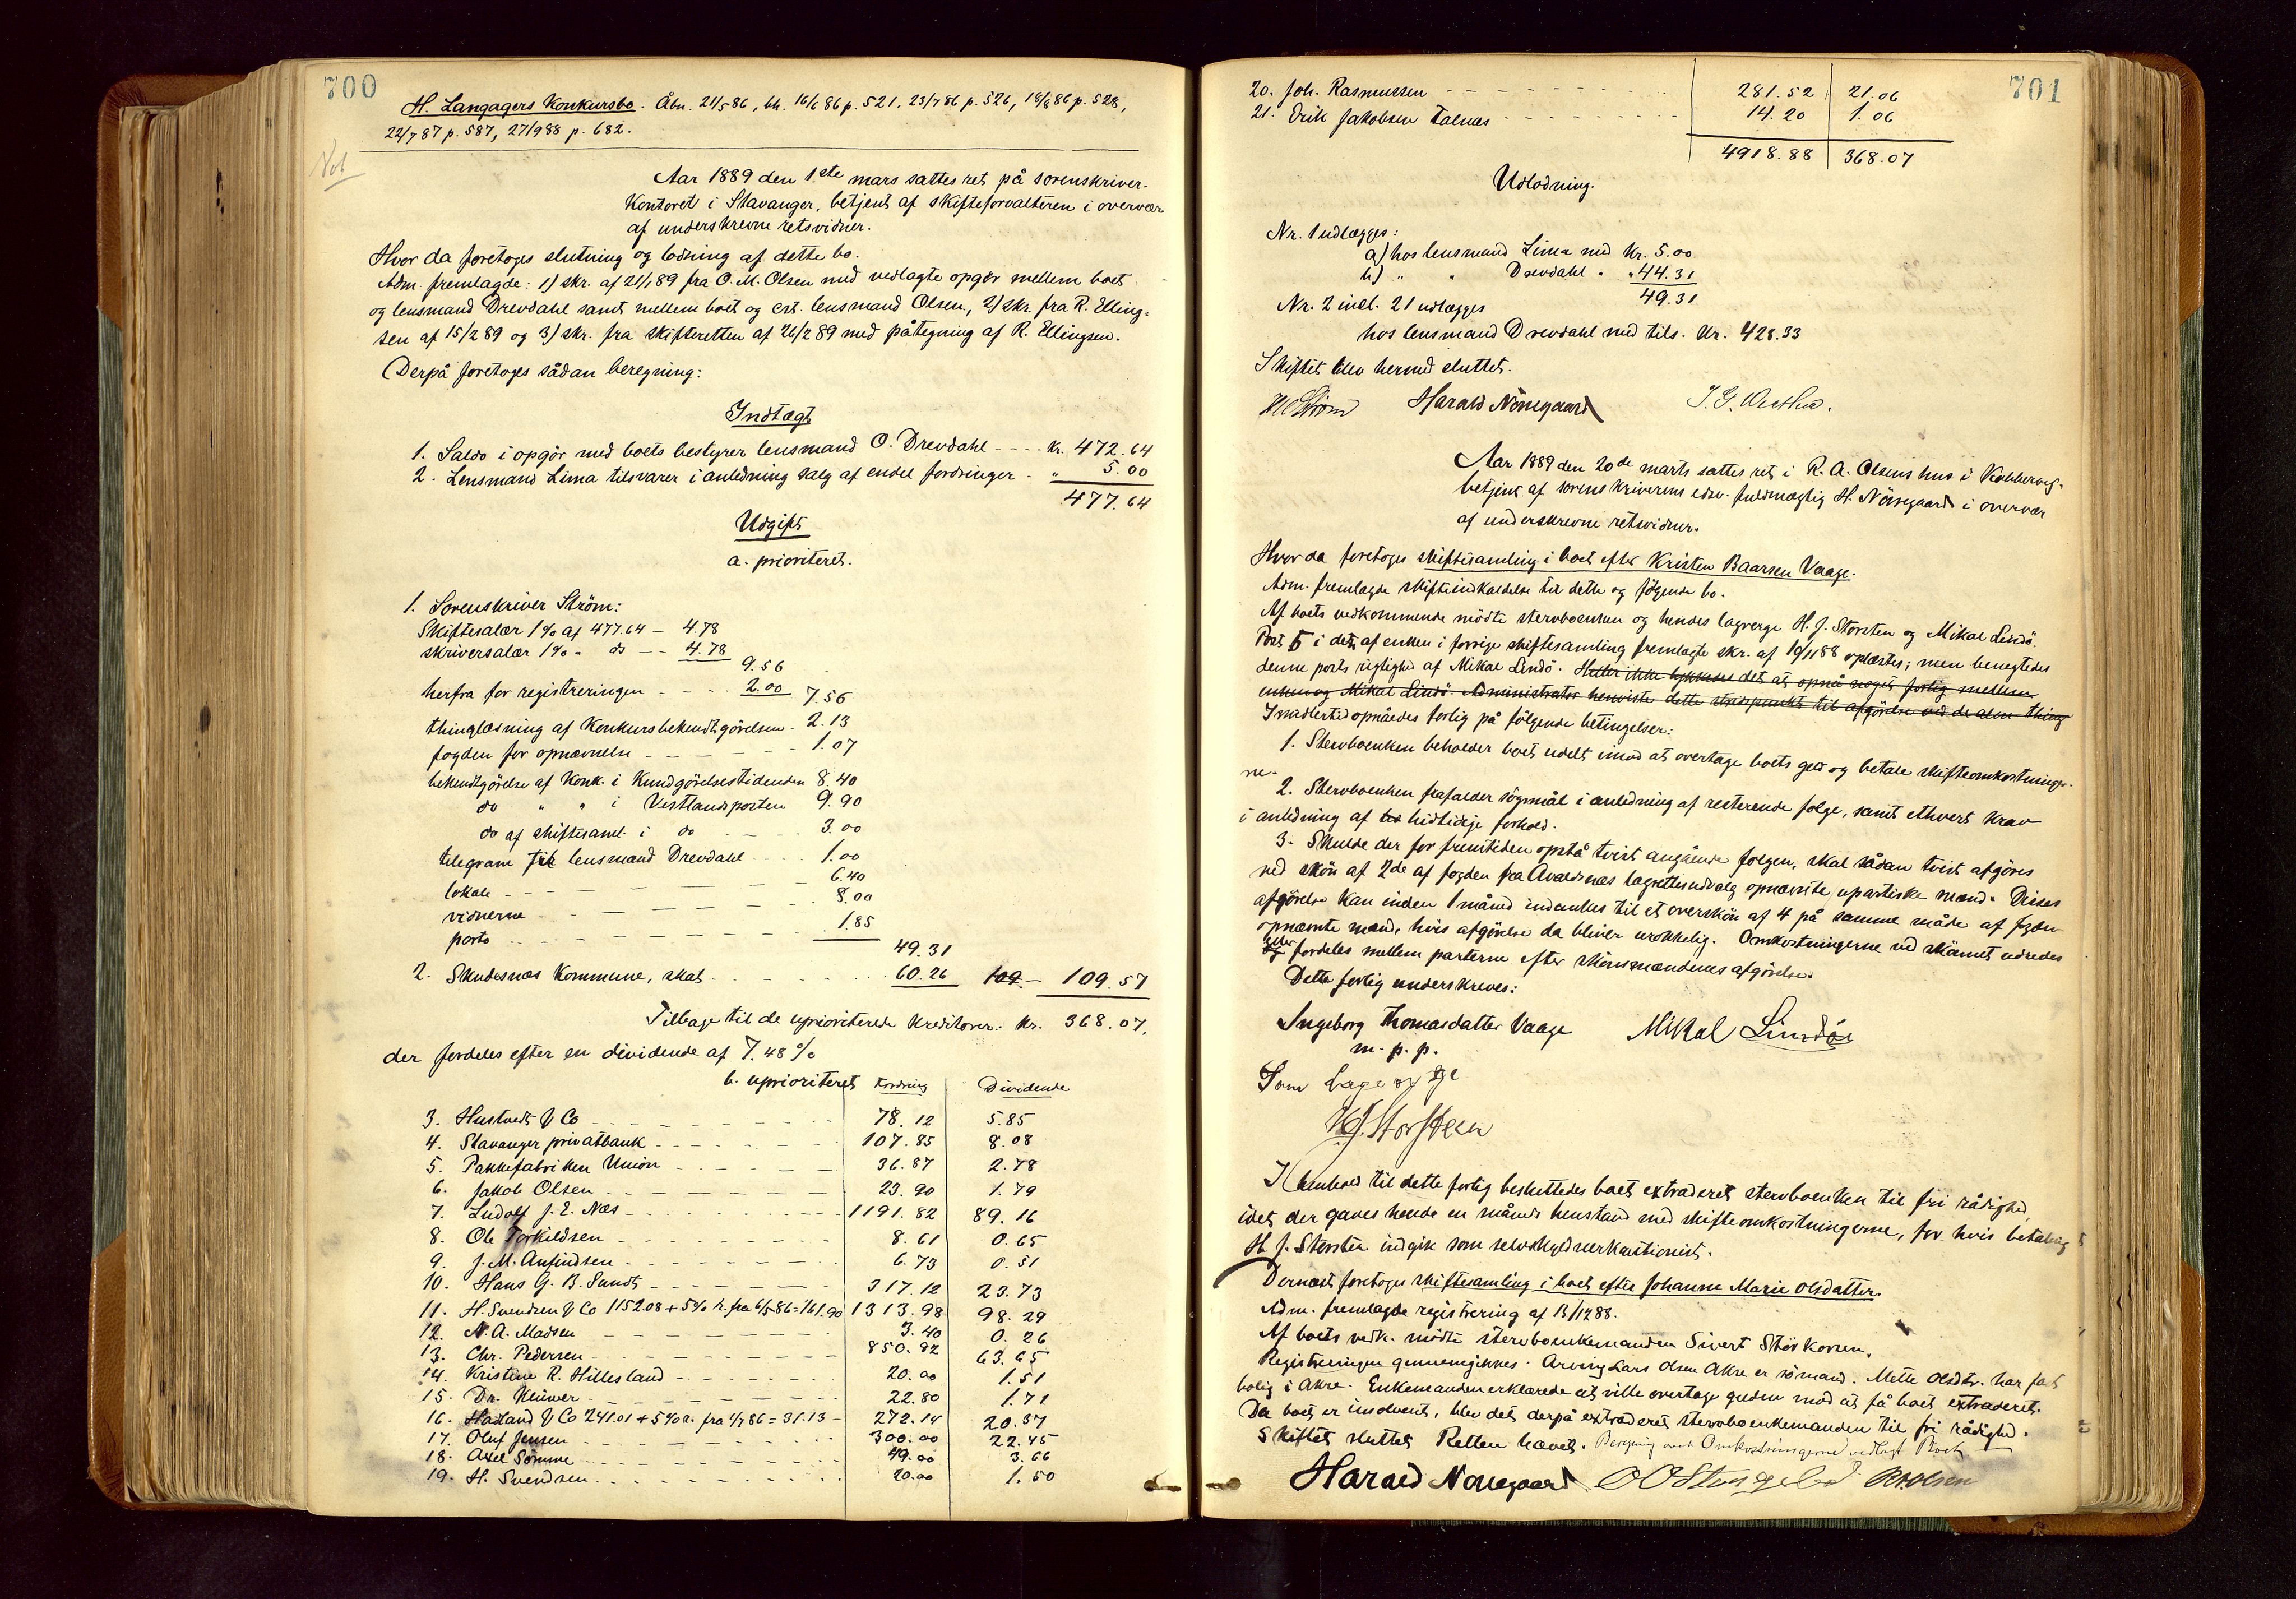 700
H. Langagers Konkursbo. Åbn. 21/5 86, bh. 16/6 86 p. 521, 23/7 86 p. 526, 18/8 86 p. 528,
22/7 87 p. 587, 27/9 88 p. 682.
Not
Aar 1889 den 1ste mars sattes ret på sorenskriver-
kontoret i Stavanger, betjent af skifteforvalteren i overvær
af underskrevne retsvidner.
Hvor da foretoges slutning og lodning af dette bo.
Adm. fremlagde: 1) skr. af 21/1 89 fra O. M. Olsen med vedlagte opgør mellem boet
og lensmand Drevdahl samt mellem boet og cst. lensmand Olsen, 2) skr. fra R. Elling-
sen af 15/2 89 og 3) skr. fra skifteretten af 26/2 89 med påtegning af R. Ellingsen.
Derpå foretoges sådan beregning:
Indtægt
1. Saldo i opgør med boets bestyrer lensmand O. Drevdahl - - - - kr. 472.64
2. Lensmand Lima tilsvarer i anledning salg af endel fordringer - „ 5.00
477.64
Udgift
a. prioriteret.
1. Sorenskriver Ström:
Skiftesalær 1% af 477.64 - 4.78
skriversalær 1% - do - - 4.78
9.56
herfra for registreringen - - - - 2.00 7.56
thinglæsning af konkursbekendtgörelsen - 2.13
fogden for opnævnelse - - - - 1.07
bekendtgörelse af Konk. i Kundgörelsestidenden 8.40
do „ „ i Vestlandsposten 9.90
do af skiftesaml. i do - - - - 3.00
telegram til lensmand Drevdahl - - - - 1.00
lokale - - - - 6.40
vidnerne - - - - 8.00
porto - - - - 1.85
49.31
2. Skudesnæs Kommune, skat - - - - 60.26 109 - 109.57
Tilbage til de uprioriterede kreditorer: kr. 368.07,
der fordeles efter en dividende af 7.48 %
b. uprioriteret Fordring Dividende
3. Hustvedt & Co - - - - 78.12 5.85
4. Stavanger privatbank - - - - 107.85 8.08
5. Pakkefabriken Union - - - - 36.87 2.78
6. Jakob Olsen - - - - 23.90 1.79
7. Ludolf J. E. Næs - - - - 1191.82 89.16
8. Ole Torkildsen - - - - 8.61 0.65
9. J. M. Anfindsen - - - - 6.73 0.51
10. Hans G. B. Sundt - - - - 317.12 23.73
11. H. Svendsen & Co 1152.08 + 5% r. fra 6/5 86 = 161.90 1313.98 98.29
12. N. A. Madsen - - - - 3.40 0.26
13. Chr. Pedersen - - - - 850.92 63.65
14. Kristine R. Hillesland - - - - 20.00 1.51
15. Dr. Klüwer - - - - 22.80 1.71
16. Haaland & Co 241.01 + 5% r. fra 1/7 86 = 31.13 - 272.14 20.37
17. Oluf Jensen - - - - 300.00 22.45
18. Axel Sömme - - - - 49.00 3.66
19. H. Svendsen - - - - 20.00 1.50
701
20. Joh. Rasmussen - - - - 281.52 21.06
21. Erik Jakobsen Falnæs - - - - 14.20 1.06
4918.88 368.07
Udlodning.
Nr. 1 udlægges:
a) hos lensmand Lima med kr. 5.00
b) „ „ Drevdahl „ „ 44.31
49.31
Nr. 2 incl. 21 udlægges
hos lensmand Drevdahl med tils. kr. 428.33
Skiftet blev hermed sluttet.
Ström Harald Nörregaard
Aar 1889 den 20de marts sattes ret i R. A. Olsens hus i Kobbervig,
betjent af sorenskriverens edsv. fuldmægtig H. Nörregaard i overvær
af underskrevne retsvidner.
Hvor da foretoges skiftesamling i boet efter Kristen Baarsen Vaage.
Adm. fremlagde skifteindkaldelse til dette og følgende bo.
Af boets vedkommende mödte stervboenken og hendes lagverge H. J. Storsten og Mikal Lindö.
Post 5 i det af enken i forrige skiftesamling fremlagte skr. af 19/11 88 oplæstes; men benegtedes
denne posts rigtighed af Mikal Lindö. Heller ikke lykkedes det at opnå noget forlig mellem
enken og Mikal Lindö. Administrator henviste dette stridspunkt til afgörelse ved de alm. thing
Imidlertid opnåedes forlig på fölgende betingelser:
1. Stervboenken beholder boet udelt imod at overtage boets gæld og betale skifteomkostninger-
ne.
2. Stervboenken frafalder sögsmål i anledning af resterende folge, samt ethvert krav
i anledning af hidtidige forhold.
3. Skulde der for fremtiden opstå tvist angående folgen, skal sådan tvist afgöres
ved skön af 2de af fogden fra Avaldsnæs lagrettesudvalg opnævnte upartiske mænd. Disses
afgörelse kan inden 1 måned indankes til et overskön af 4 på samme måde af fogden
opnævnte mænd, hvis afgörelse da bliver urokkelig. Omkostningerne ved skönnet udredes
eller fordeles mellem parterne efter skönsmændenes afgörelse.
Dette forlig underskreves:
Ingeborg Thomasdatter Vaage Mikal Lindöe
m. p. p.
Som
H J. Storsteen
I henhold til dette forlig besluttedes boet extraderet stervboenken til fri rådighed,
idet der gaves hende en måneds henstand med skifteomkostningerne, for hvis betaling
H. J. Storsten indgik som selvskyldnerkautionist.
Dernæst foretoges skiftesamling i boet efter Johanne Marie Olsdatter.
Adm. fremlagde registrering af 13/12 88.
Af boets vedk. mödte stervboenkemanden Sivert Störkorsen.
Registreringen gjennemgikkes. Arving Lars Olsen Akre er sömand. Mette Olsdtr. har fast
bolig i Akre. Enkemanden erklærede at ville overtage gjælden mod at få boet extraderet.
Da boet er insolvent, blev det derpå extraderet stervboenkemanden til fri rådighed.
Skiftet sluttet. Retten hævet. Beregning over Omkostningerne vedlagt Boet
Harald Nörregaard R A Olsen